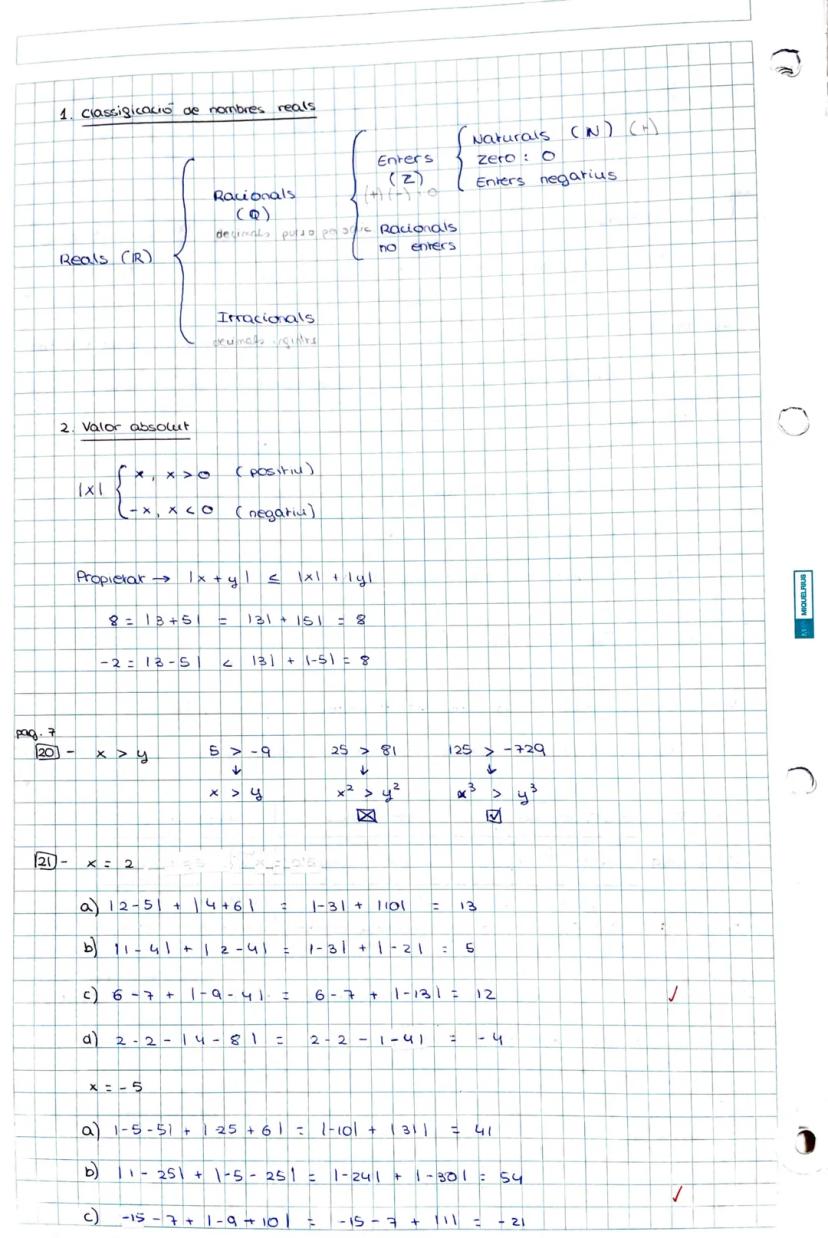 1. Classificació de nombres reals
Naturals (N) (+)
Enters
zero : 0
(Z)
Enters negatius
Racionals
(+) (-) 0
(Q)
Racionals
no enters
Reals (R)
Irracionals
2. Valor absolut
|x| { x, x > 0 (positiu)
-x, x < 0 (negatiu)
Propietat → |x + y| ≤ |x| + |y|
8 = |3+5| = |3| + |5| = 8
-2 = |3-5| < |3| + |-5| = 8
pag. 7
20 - x > y 5 > -9 25 > 81 125 > -729
↓ ↓ ↓
x > y x² > y² x³ > y³
☒ ☑
21 - x = 2
a) |2-5| + |4+6| = |-3| + |10| = 13
b) |1-4| + |2-4| = |-3| + |-2| = 5
c) 6-7 + |-9-4| = 6-7 + |-13| = 12
d) 2-2-|4-8| = 2-2-|-4| = -4
x = -5
a) |-5-5| + |25+6| = |-10| + |31| = 41
b) |1-25| + |-5-25| = |-24| + |-30| = 54
c) -15-7 + |-9+10| = -15-7 + |1| = -21
MIQUELRIUS